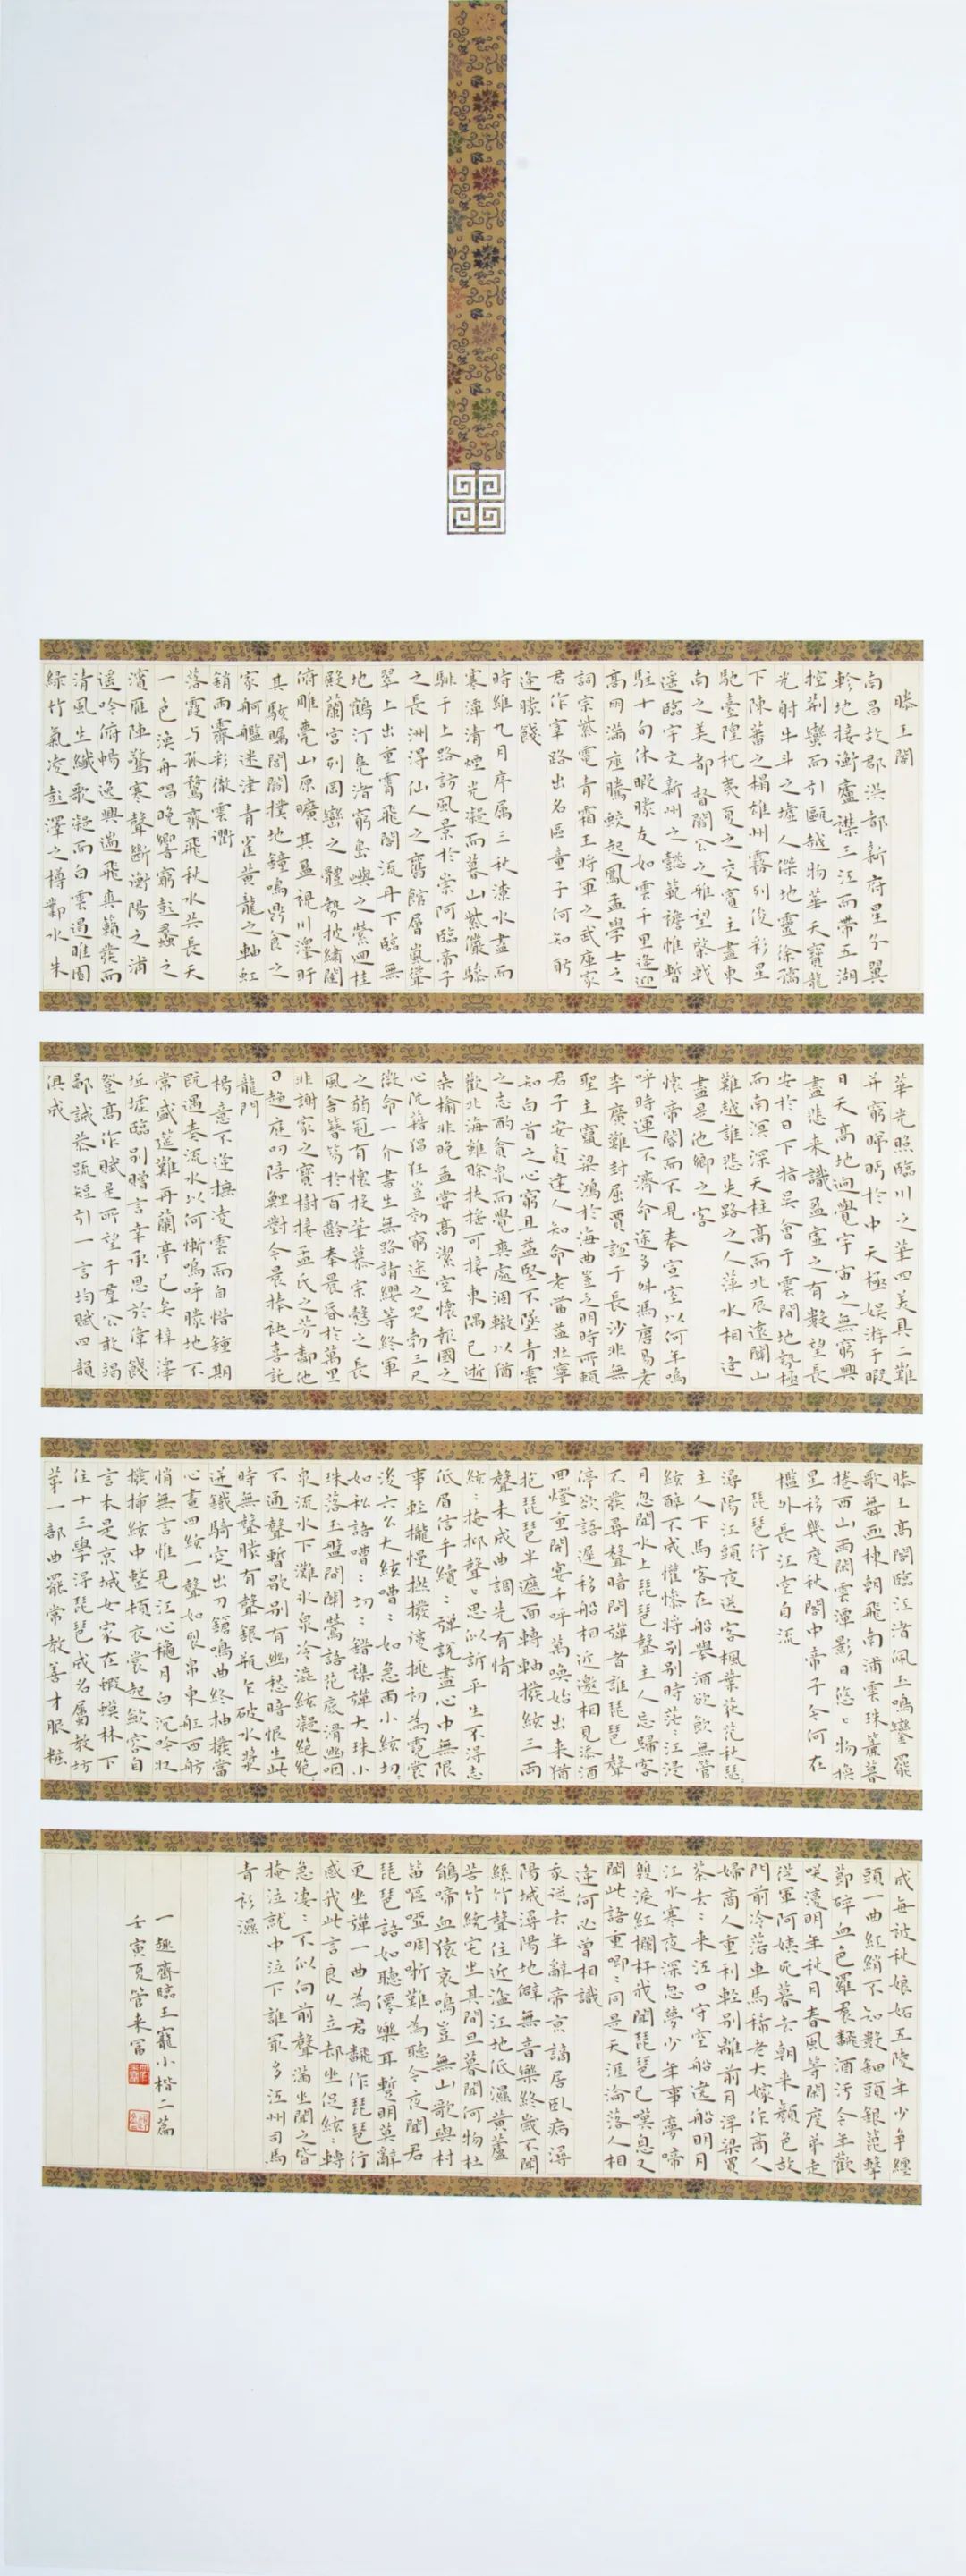 滕王閣
南昌故郡洪部新府星分翼
軫地接衡廬襟三江而帶五湖
控荆蠻而引甌越物華天寶龍
光射牛斗之墟人傑地靈徐孺
下陳蕃之榻雄州霧列俊彩星
馳臺隍枕夷夏之交賓主盡東
南之美都督閻公之雅望棨戟
遥臨宇文新州之懿範襜惟暫
駐十旬休暇滕友如雲千里逢迎
高朋滿座騰蛟起鳳孟學士之
詞宗紫電青霜王將軍之武庫家
君作宰路出名區童子何知躬
逢勝餞
時維九月序属三秋潦水盡而
寒潭清煙光凝而暮山紫儼驂
騑于上路訪風景於崇阿臨帝子
之長洲得仙人之舊館層巒聳
翠上出重霄飛閣流丹下臨無
地鶴汀鳧渚窮島嶼之縈迴桂
殿蘭宫列岡巒之體勢披繡闥
俯雕甍山原曠其盈視川澤盱
其駭矚閭閻撲地鐘鳴鼎食之
家舸艦迷津青雀黄龍之軸虹
銷雨霽彩徹雲衢
落霞与孤鶩齊飛秋水共長天
一色漁舟唱晚響窮彭蠡之
濱雁陣驚寒聲斷衡陽之浦
遥吟俯暢逸興遄飛爽籟發而
清風生纖歌凝而白雲遏睢園
綠竹氣凌彭澤之樽鄴水朱
華光照臨川之筆四美具二難
并窮睇眄於中天極娱游于暇
日天高地迥覺宇宙之無窮興
盡悲来識盈虚之有數望長
安於日下指吴會于雲間地勢極
而南溟深天柱高而北辰遠關山
難越誰悲失路之人萍水相逢
盡是他鄉之客
懷帝閽而不見奉宣室以何年嗚
呼時運不濟命途多舛馮唐易老
李廣難封屈賈誼于長沙非無
聖主竄梁鴻於海曲豈乏明時所賴
君子安貞達人知命老當益壯寧
知白首之心窮且益堅不墜青雲
之志酌貪泉而覺爽處涸轍以猶
歡北海雖賒扶摇可接東隅已逝
桑榆非晚孟嘗高潔空懷報國之
心阮藉猖狂豈効窮途之哭勃三尺
微命一介書生無路請纓等終軍
之弱冠有懷投筆慕宗慤之長
風舍簪笏於百齡奉晨昏於萬里
非謝家之寶樹接孟氏之芳鄰他
日趨庭叨陪鯉對今晨捧袂喜託
龍門
楊意不逢撫凌雲而自惜鍾期
既遇奏流水以何慚嗚呼勝地不
常盛筵難再蘭亭已矣梓澤
坵墟臨别贈言幸承恩於偉餞
登高作賦是所望于羣公敢竭
鄙誠恭疏短引一言均賦四韻
俱成
滕王高閣臨江渚佩玉鳴鑾罷
歌舞画棟朝飛南浦雲珠簾暮
捲西山雨閑雲潭影日悠〻物换
星移幾度秋閣中帝子今何在
檻外長江空自流
琵琶行
潯陽江頭夜送客楓葉荻花秋瑟〻
主人下馬客在船舉酒欲飲無管
絃醉不成懽慘将别别時茫〻江浸
月忽聞水上琵琶聲主人忘歸客
不發尋聲暗問彈者誰琵琶聲
停欲語遲移船相近邀相見添酒
回燈重開宴千呼萬唤始出来猶
抱琵琶半遮面轉軸撥絃三兩
聲未成曲調先有情
絃〻掩抑聲〻思似訴平生不得志
低眉信手續〻彈說盡心中無限
事輕攏慢撚撥復挑初為霓裳
後六幺大絃嘈〻如急雨小絃切〻
如私語嘈〻切〻錯襍彈大珠小
珠落玉盤間關鶯語花底滑幽咽
泉流水下灘水泉冷澁絃凝絶
不通聲暫歇别有幽愁暗恨生此
時無聲勝有聲銀瓶乍破水漿
迸鐵騎突出刀鎗鳴曲終抽撥當
心畫四絃一聲如裂帛東舡西舫
悄無言惟見江心穐月白沉吟收
撥揷絃中整頓衣裳起斂容自
言本是京城女家在蝦蟆林下
住十三學得琵琶成名屬教坊
第一部曲罷常教善才服粧
成每被秋娘妬五陵年少争纏
頭一曲紅綃不知數鈿頭銀篦擊
節碎血色羅裙翻酒汙今年歡
咲復明年秋月春風等閑度弟走
從軍阿姨死暮去朝来顔色故
門前冷落車馬稀老大嫁作商人
婦商人重利輕别離前月浮梁買
茶去〻来江口守空船遶船明月
江水寒夜深忽夢少年事夢啼
雙淚紅欄杆我聞琵琶已嘆息又
聞此語重唧〻同是天涯淪落人相
逢何必曾相識
我從去年辭帝京謫居卧病潯
陽城潯陽地僻無音樂終歲不聞
絲竹聲住近湓江地低濕黄蘆
苦竹繞宅生其間旦暮聞何物杜
鵑啼血猿哀鳴豈無山歌與村
笛嘔啞啁哳難為聽今夜聞君
琵琶語如聽僊樂耳暫明莫辭
更坐彈一曲為君翻作琵琶行
感我此言良久立却坐促絃〻轉
急凄〻不似向前聲滿坐聞之皆
掩泣就中泣下誰最多江州司馬
青衫濕
一趣齋臨王寵小楷二篇
壬寅夏管来富